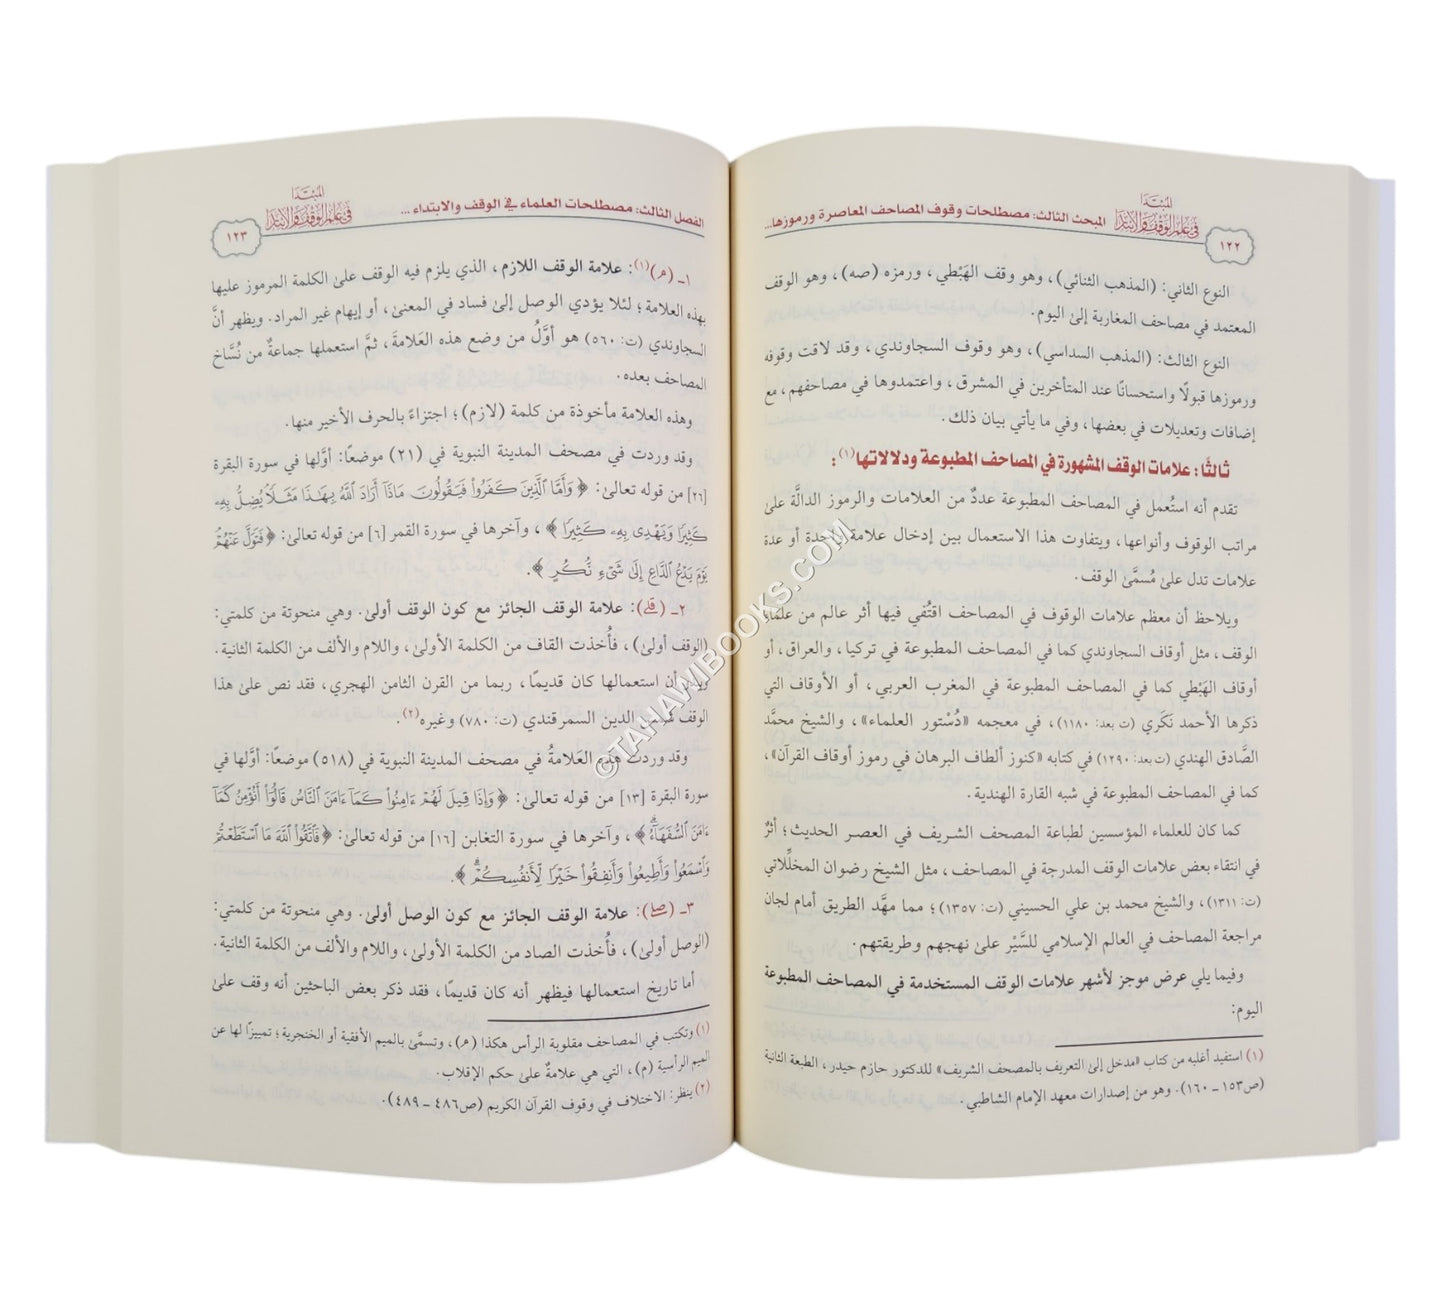 المبتدا
في علم الوقف والابتدا
المبحث الثالث: مصطلحات وقوف المصاحف المعاصرة ورموزها...
١٢٢
النوع الثاني: (المذهب الثنائي)، وهو وقف الهَبْطي، ورمزه (صه)، وهو الوقف
المعتمد في مصاحف المغاربة إلى اليوم.
النوع الثالث: (المذهب السداسي)، وهو وقوف السجاوندي، وقد لاقت وقوفه
ورموزها قبولًا واستحسانًا عند المتأخرين في المشرق، واعتمدوها في مصاحفهم، مع
إضافات وتعديلات في بعضها، وفي ما يأتي بيان ذلك.
ثالثًا: علامات الوقف المشهورة في المصاحف المطبوعة ودلالاتها(١):
تقدم أنه استُعمل في المصاحف المطبوعة عددٌ من العلامات والرموز الدالَّة على
مراتب الوقوف وأنواعها، ويتفاوت هذا الاستعمال بين إدخال علامة واحدة أو عدة
علامات تدل على مُسمَّى الوقف.
ويلاحظ أن معظم علامات الوقوف في المصاحف اقتُفي فيها أثر عالم من علماء
الوقف، مثل أوقاف السجاوندي كما في المصاحف المطبوعة في تركيا، والعراق، أو
أوقاف الهَبْطي كما في المصاحف المطبوعة في المغرب العربي، أو الأوقاف التي
ذكرها الأحمد نَكَري (ت بعد: ١١٨٠)، في معجمه «دُسْتور العلماء»، والشيخ محمَّد
الصَّادق الهندي (ت بعد: ١٢٩٠) في كتابه «كنوز ألطاف البرهان في رموز أوقاف القرآن»،
كما في المصاحف المطبوعة في شبه القارة الهندية.
كما كان للعلماء المؤسسين لطباعة المصحف الشريف في العصر الحديث؛ أثرٌ
في انتقاء بعض علامات الوقف المدرجة في المصاحف، مثل الشيخ رضوان المخلِّلاتي
(ت: ١٣١١)، والشيخ محمد بن علي الحسيني (ت: ١٣٥٧)؛ مما مهَّد الطريق أمام لجان
مراجعة المصاحف في العالم الإسلامي للسَّيْر على نهجهم وطريقتهم.
وفيما يلي عرض موجز لأشهر علامات الوقف المستخدمة في المصاحف المطبوعة
اليوم:
(١) استفيد أغلبه من كتاب «مدخل إلى التعريف بالمصحف الشريف» للدكتور حازم حيدر، الطبعة الثانية
(ص١٥٣ – ١٦٠). وهو من إصدارات معهد الإمام الشاطبي.
الفصل الثالث: مصطلحات العلماء في الوقف والابتداء ...
المبتدا
في علم الوقف والابتدا
١٢٣
١ـ (م)(١): علامة الوقف اللازم، الذي يلزم فيه الوقف على الكلمة المرموز عليها
بهذه العلامة؛ لئلا يؤدي الوصل إلى فساد في المعنى، أو إيهام غير المراد. ويظهر أنَّ
السجاوندي (ت: ٥٦٠) هو أوَّلُ من وضع هذه العَلامَة، ثمَّ استعملها جماعةٌ من نُسَّاخ
المصاحف بعده.
وهذه العلامة مأخوذة من كلمة (لازم)؛ اجتزاءً بالحرف الأخير منها.
وقد وردت في مصحف المدينة النبوية في (٢١) موضعًا: أوَّلها في سورة البقرة
[٢٦] من قوله تعالى: ﴿وَأَمَّا ٱلَّذِينَ كَفَرُواْ فَيَقُولُونَ مَاذَآ أَرَادَ ٱللَّهُ بِهَٰذَا مَثَلًاۘ يُضِلُّ بِهِۦ
كَثِيرٗا وَيَهۡدِي بِهِۦ كَثِيرٗا﴾، وآخرها في سورة القمر [٦] من قوله تعالى: ﴿فَتَوَلَّ عَنۡهُمۡۘ
يَوۡمَ يَدۡعُ ٱلدَّاعِ إِلَىٰ شَيۡءٖ نُّكُرٍ﴾.
٢ـ (قلى): علامة الوقف الجائز مع كون الوقف أولى. وهي منحوتة من كلمتي:
(الوقف أولى)، فأُخذت القاف من الكلمة الأولى، واللام والألف من الكلمة الثانية.
أن استعمالها كان قديمًا، ربما من القرن الثامن الهجري، فقد نص على هذا
الوقف الدين السمرقندي (ت: ٧٨٠) وغيره(٢).
وقد وردت هذه العَلامةُ في مصحف المدينة النبوية في (٥١٨) موضعًا: أوَّلها في
سورة البقرة [١٣] من قوله تعالى: ﴿وَإِذَا قِيلَ لَهُمۡ ءَامِنُواْ كَمَآ ءَامَنَ ٱلنَّاسُ قَالُوٓاْ أَنُؤۡمِنُ كَمَآ
ءَامَنَ ٱلسُّفَهَآءُۗ﴾، وآخرها في سورة التغابن [١٦] من قوله تعالى: ﴿فَٱتَّقُواْ ٱللَّهَ مَا ٱسۡتَطَعۡتُمۡ
وَٱسۡمَعُواْ وَأَطِيعُواْ وَأَنفِقُواْ خَيۡرٗا لِّأَنفُسِكُمۡۗ﴾.
٣ـ (صلى): علامة الوقف الجائز مع كون الوصل أولى. وهي منحوتة من كلمتي:
(الوصل أولى)، فأُخذت الصاد من الكلمة الأولى، واللام والألف من الكلمة الثانية.
أما تاريخ استعمالها فيظهر أنه كان قديمًا، فقد ذكر بعض الباحثين أنه وقف على
(١) وتكتب في المصاحف مقلوبة الرأس هكذا (م)، وتسمَّى بالميم الأفقية أو الخنجرية؛ تمييزًا لها عن
الميم الرأسية (م)، التي هي علامةٌ على حكم الإقلاب.
(٢) ينظر: الاختلاف في وقوف القرآن الكريم (ص٤٨٦ – ٤٨٩).
©TAHAWIBOOKS.COM